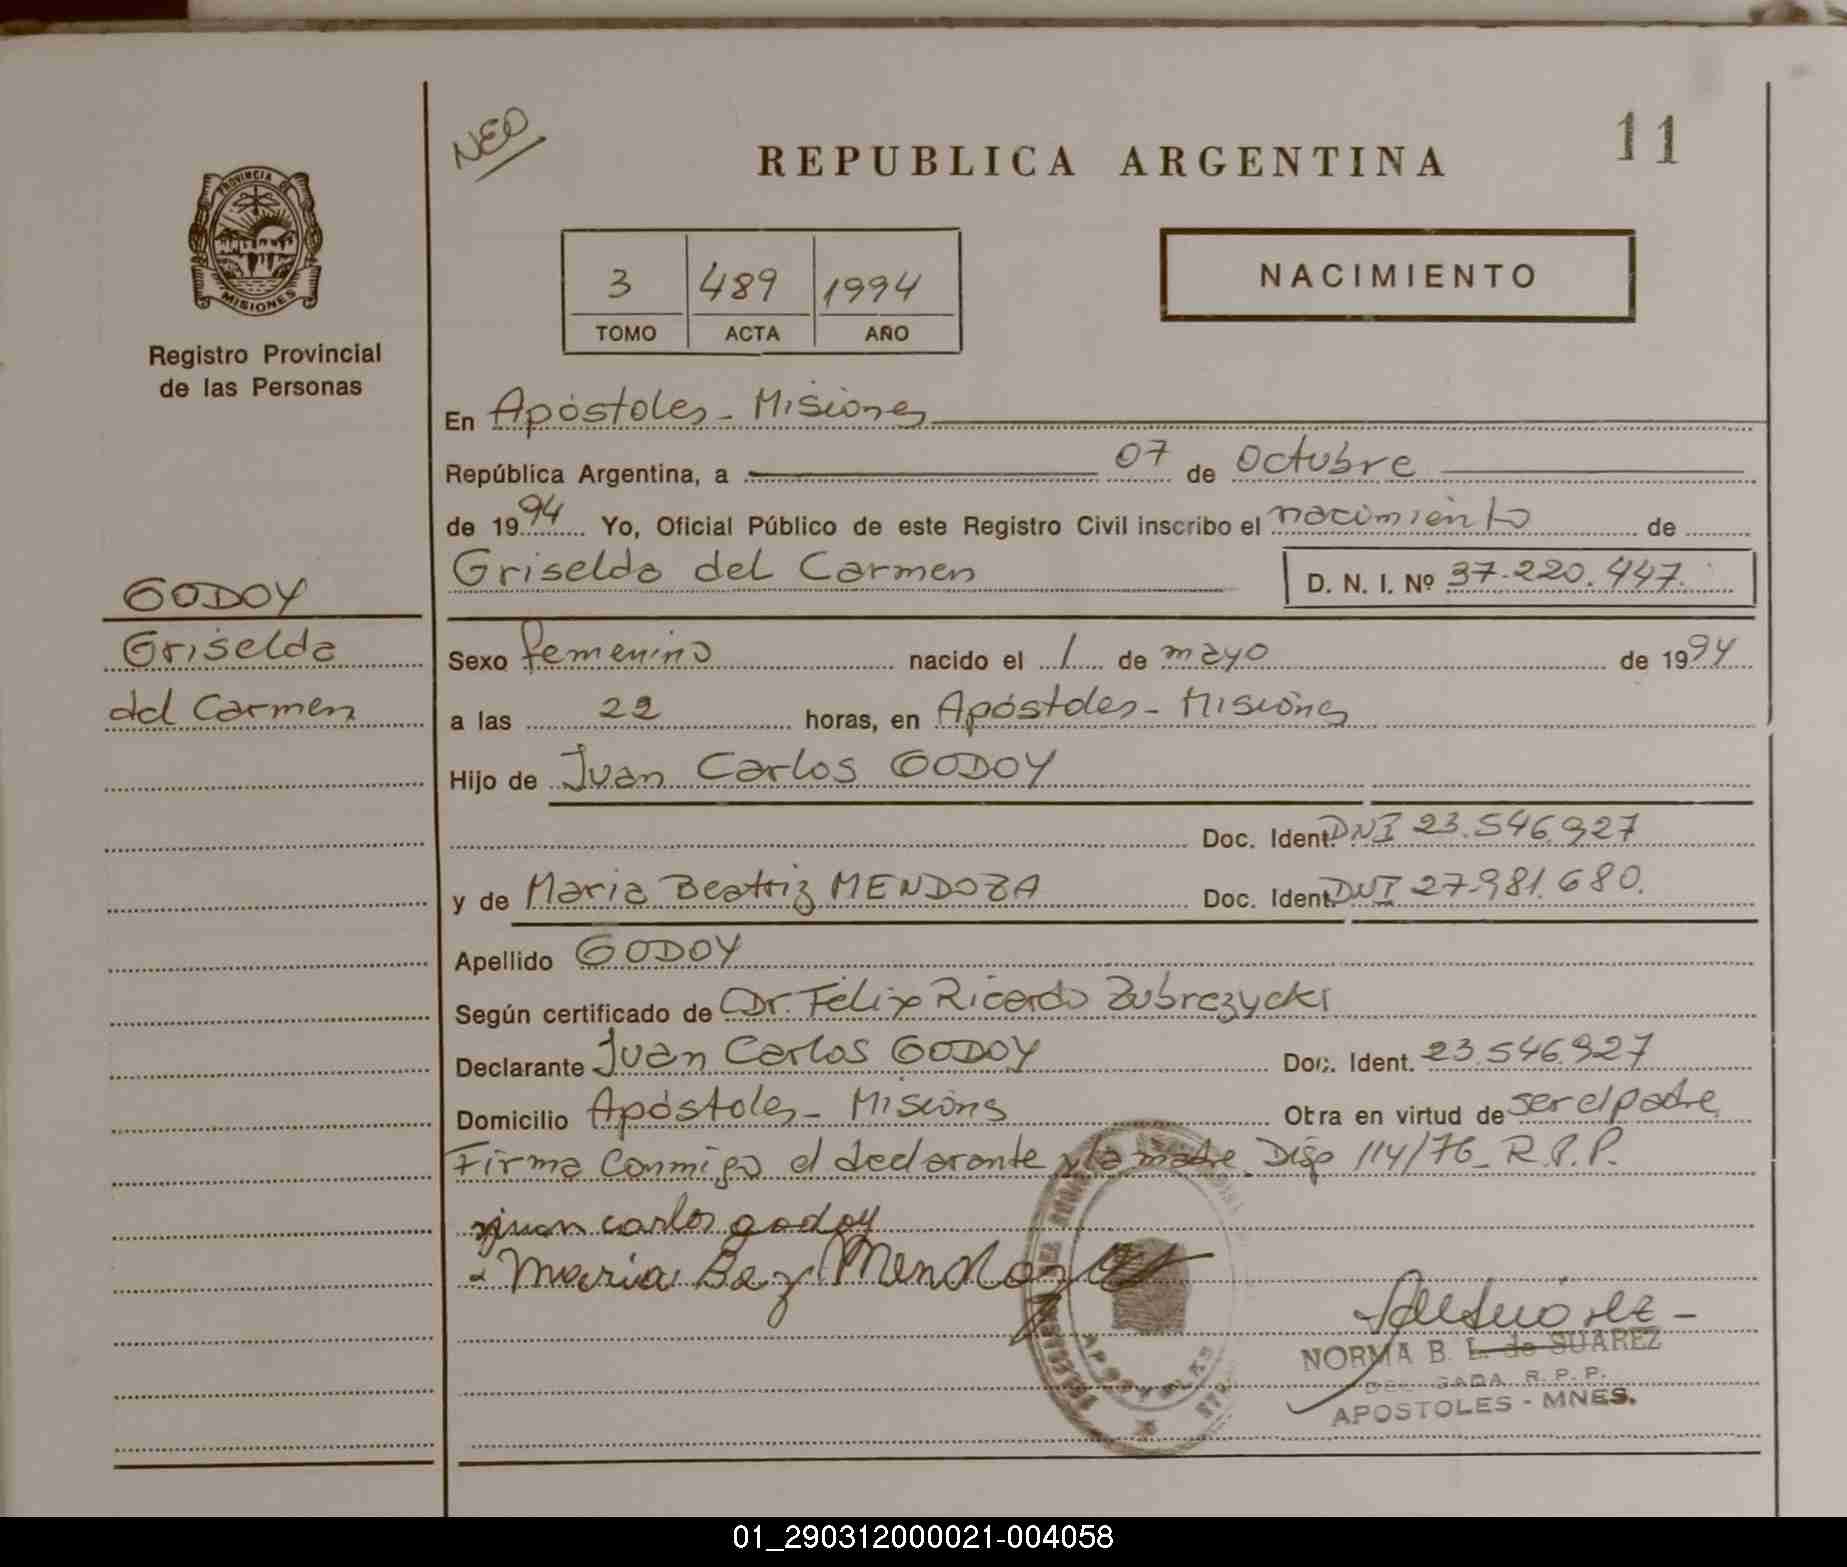 NEO
REPUBLICA ARGENTINA
11
PROVINCIA DE
MISIONES
Registro Provincial
de las Personas
3 489 1994
TOMO ACTA AÑO
NACIMIENTO
En Apóstoles - Misiones
República Argentina, a 07 de Octubre
de 1994 Yo, Oficial Público de este Registro Civil inscribo el nacimiento de
Griselda del Carmen D. N. I. Nº 37.220.447.
GODOY
Griselda
del Carmen
Sexo femenino nacido el 1 de mayo de 1994
a las 22 horas, en Apóstoles - Misiones
Hijo de Juan Carlos GODOY
Doc. Ident. DNI 23.546.927
y de Maria Beatriz MENDOZA Doc. Ident. DNI 27.981.680.
Apellido GODOY
Según certificado de Dr. Félix Ricardo Zubrczycki
Declarante Juan Carlos GODOY Doc. Ident. 23.546.927
Domicilio Apóstoles - Misiones Obra en virtud de ser el padre
Firma conmigo el declarante y la madre. Disp 114/76 - R.P.P.
juan carlos godoy
Maria Bez Mendoza
APOSTOLES
NORMA B. L. de SUAREZ
DELEGADA R. P. P.
APOSTOLES - MNES.
01_290312000021-004058